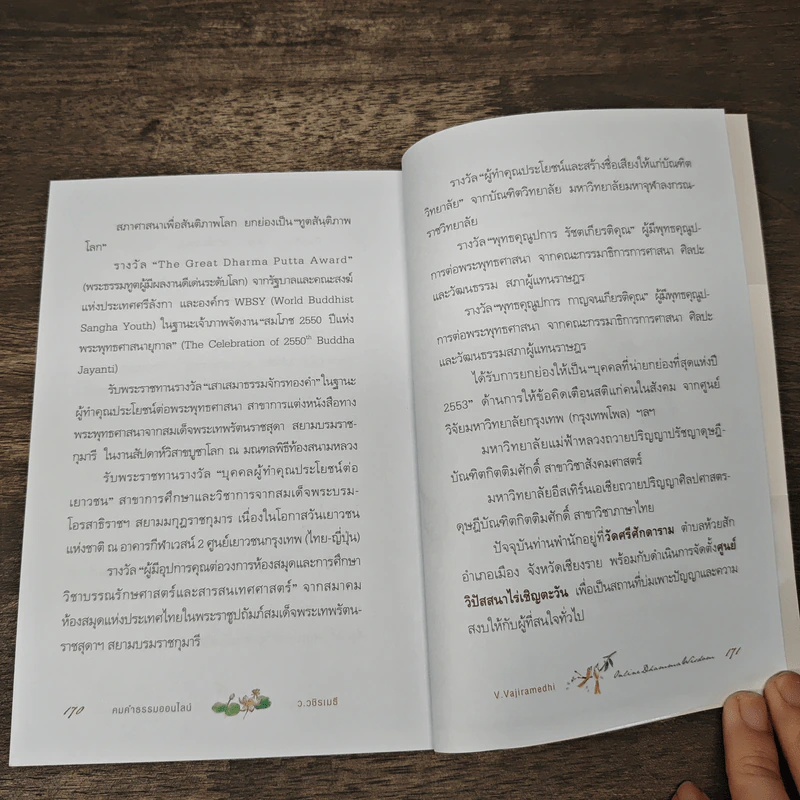 สภาศาสนาเพื่อสันติภาพโลก ยกย่องเป็น "ทูตสันติภาพ
โลก"
รางวัล "The Great Dharma Putta Award"
(พระธรรมทูตผู้มีผลงานดีเด่นระดับโลก) จากรัฐบาลและคณะสงฆ์
แห่งประเทศศรีลังกา และองค์กร WBSY (World Buddhist
Sangha Youth) ในฐานะเจ้าภาพจัดงาน "สมโภช 2550 ปีแห่ง
พระพุทธศาสนายุกาล" (The Celebration of 2550th Buddha
Jayanti)
รับพระราชทานรางวัล "เสาเสมาธรรมจักรทองคำ" ในฐานะ
ผู้ทำคุณประโยชน์ต่อพระพุทธศาสนา สาขาการแต่งหนังสือทาง
พระพุทธศาสนาจากสมเด็จพระเทพรัตนราชสุดา สยามบรมราช-
กุมารี ในงานสัปดาห์วิสาขบูชาโลก ณ มณฑลพิธีท้องสนามหลวง
รับพระราชทานรางวัล "บุคคลผู้ทำคุณประโยชน์ต่อ
เยาวชน" สาขาการศึกษาและวิชาการจากสมเด็จพระบรม-
โอรสาธิราชฯ สยามมกุฎราชกุมาร เนื่องในโอกาสวันเยาวชน
แห่งชาติ ณ อาคารกีฬาเวสน์ 2 ศูนย์เยาวชนกรุงเทพ (ไทย-ญี่ปุ่น)
รางวัล "ผู้มีอุปการคุณต่อวงการห้องสมุดและการศึกษา
วิชาบรรณรักษศาสตร์และสารสนเทศศาสตร์" จากสมาคม
ห้องสมุดแห่งประเทศไทยในพระราชูปถัมภ์สมเด็จพระเทพรัตน-
ราชสุดาฯ สยามบรมราชกุมารี
170 คมคำธรรมออนไลน์ ว.วชิรเมธี
รางวัล "ผู้ทำคุณประโยชน์และสร้างชื่อเสียงให้แก่บัณฑิต
วิทยาลัย" จากบัณฑิตวิทยาลัย มหาวิทยาลัยมหาจุฬาลงกรณ-
ราชวิทยาลัย
รางวัล "พุทธคุณูปการ รัชตเกียรติคุณ" ผู้มีพุทธคุณูป-
การต่อพระพุทธศาสนา จากคณะกรรมาธิการการศาสนา ศิลปะ
และวัฒนธรรม สภาผู้แทนราษฎร
รางวัล "พุทธคุณูปการ กาญจนเกียรติคุณ" ผู้มีพุทธคุณูป-
การต่อพระพุทธศาสนา จากคณะกรรมาธิการการศาสนา ศิลปะ
และวัฒนธรรมสภาผู้แทนราษฎร
ได้รับการยกย่องให้เป็น "บุคคลที่น่ายกย่องที่สุดแห่งปี
2553" ด้านการให้ข้อคิดเตือนสติแก่คนในสังคม จากศูนย์
วิจัยมหาวิทยาลัยกรุงเทพ (กรุงเทพโพล) ฯลฯ
มหาวิทยาลัยแม่ฟ้าหลวงถวายปริญญาปรัชญาดุษฎี-
บัณฑิตกิตติมศักดิ์ สาขาวิชาสังคมศาสตร์
มหาวิทยาลัยอีสเทิร์นเอเชียถวายปริญญาศิลปศาสตร-
ดุษฎีบัณฑิตกิตติมศักดิ์ สาขาวิชาภาษาไทย
ปัจจุบันท่านพำนักอยู่ที่วัดศรีศักดาราม ตำบลห้วยสัก
อำเภอเมือง จังหวัดเชียงราย พร้อมกับดำเนินการจัดตั้งศูนย์
วิปัสสนาไร่เชิญตะวัน เพื่อเป็นสถานที่บ่มเพาะปัญญาและความ
สงบให้กับผู้ที่สนใจทั่วไป
V.Vajiramedhi Online Dhamma Wisdom 171